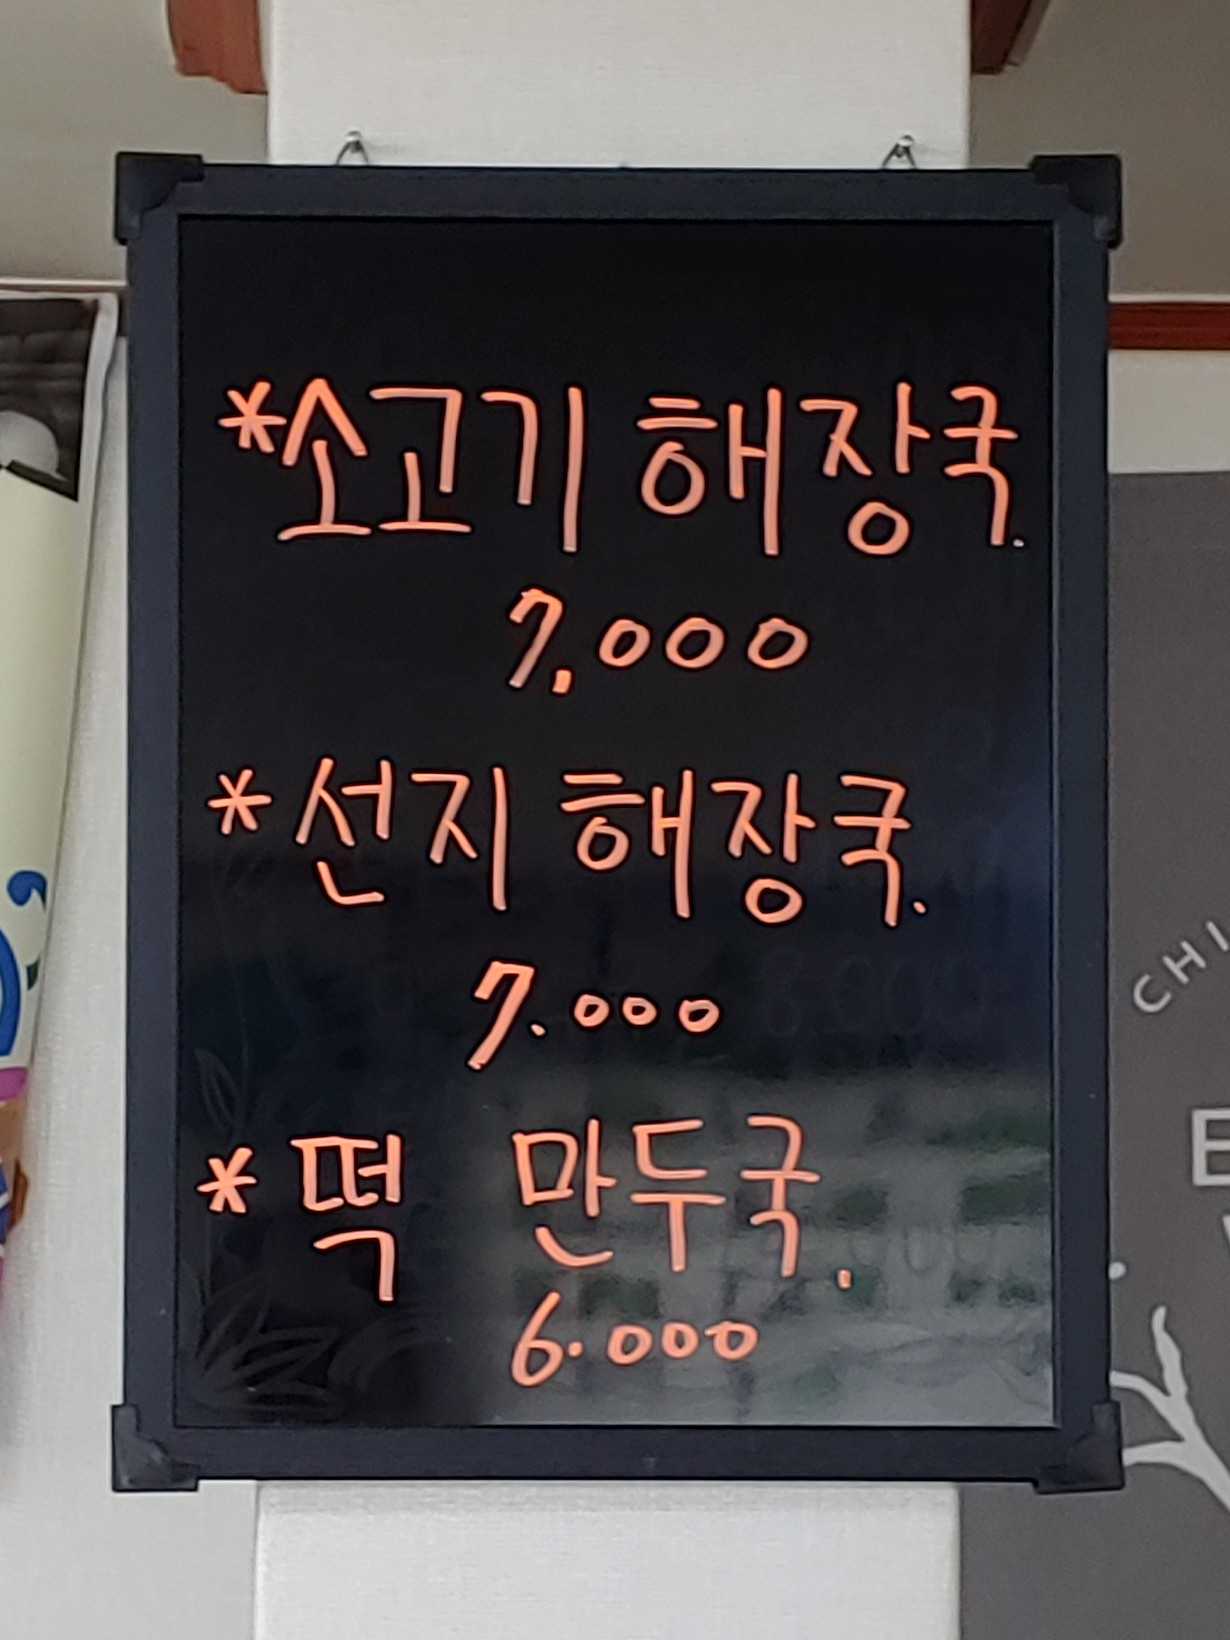 *소고기 해장국.
7,000
* 선지 해장국.
7.000
* 떡 만두국.
6.000
CHI